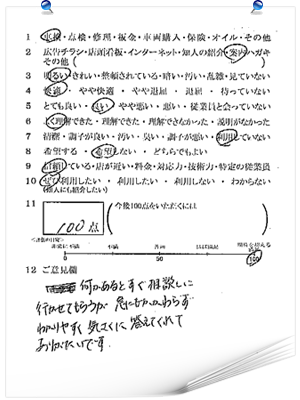 1 車検・点検・修理・板金・車両購入・保険・オイル・その他
2 広告チラシ・店頭看板・インターネット・知人の紹介・案内ハガキ
その他(　　　)
3 明るい・きれい・整頓されている・暗い・汚い・乱雑・見ていない
4 快適・やや快適・やや退屈・退屈・待っていない
5 とても良い・良い・やや悪い・悪い・従業員と会っていない
6 よく理解できた・理解できた・理解できなかった・説明がなかった
7 綺麗・調子が良い・汚い・臭い・調子が悪い・利用していない
8 希望する・希望しない・どちらでもよい
9 信頼している・店が近い・料金・対応力・技術力・特定の従業員
10 ぜひ利用したい・利用したい・利用しない・わからない
(他人にも紹介したい)
11 100点 (今後100点をいただくには
非常に不満 不満 普通 ほぼ満足 期待を超える
0 50 100
12 ご意見欄
何かあるとすぐ相談しに
行かせてもらうが 急にもかかわらず
わかりやすく 気さくに 答えてくれて
ありがたいです。